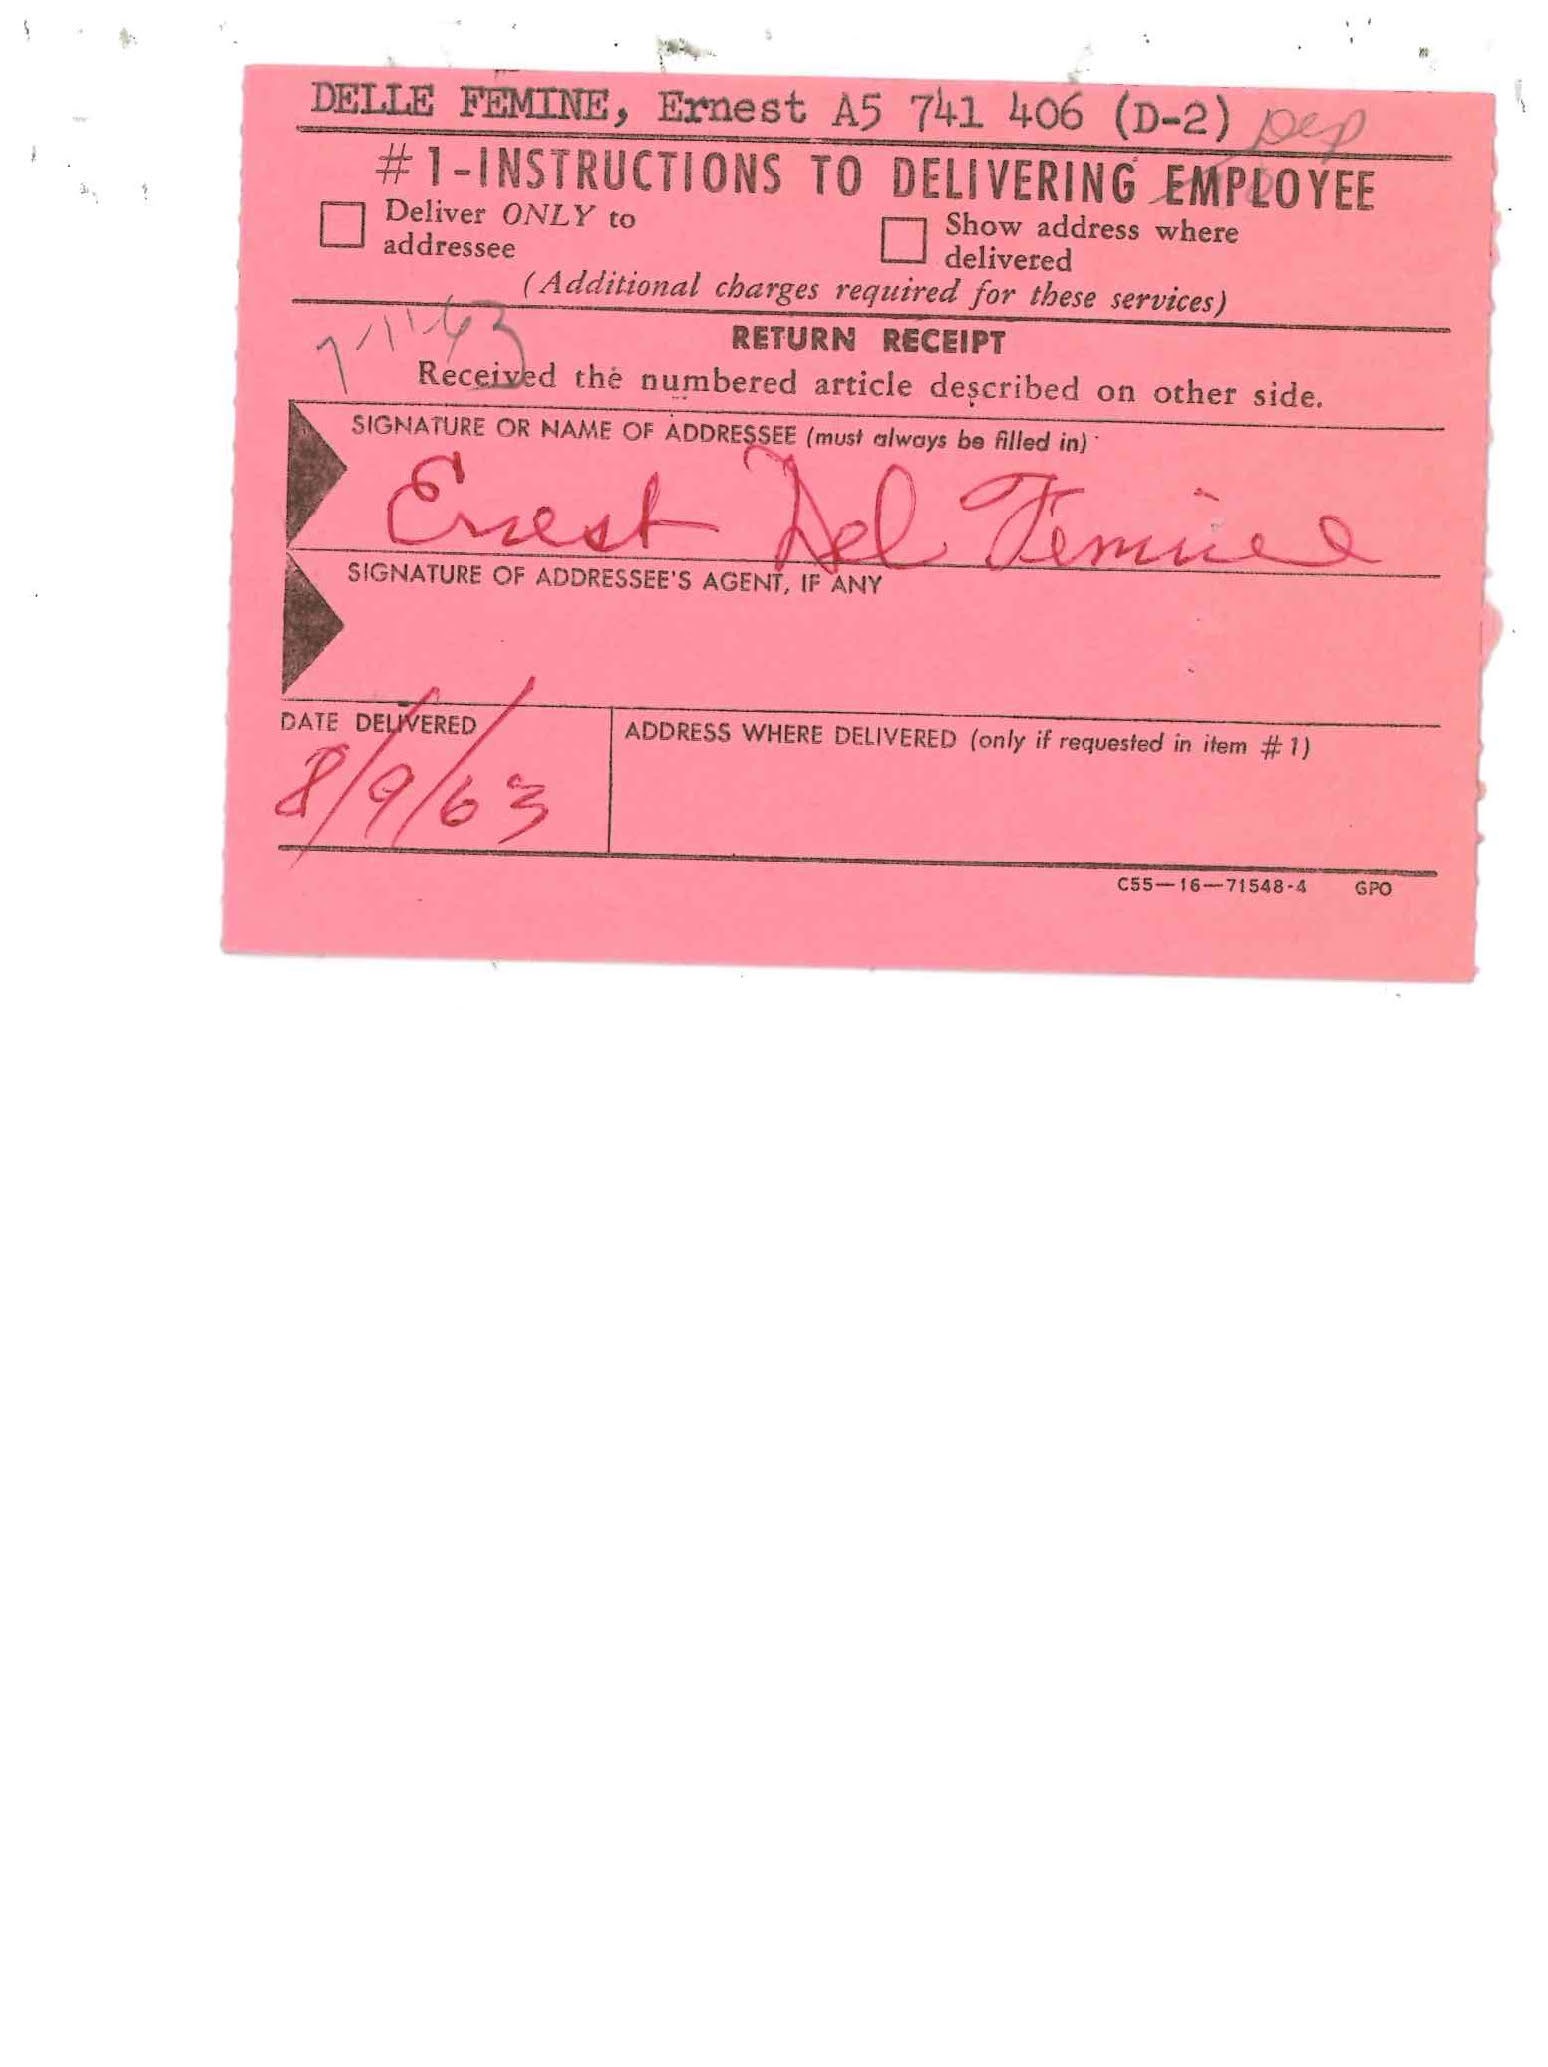 DELLE FEMINE, Ernest A5 741 406 (D-2)
#1-INSTRUCTIONS TO DELIVERING EMPLOYEE
Deliver ONLY to addressee
Show address where delivered
(Additional charges required for these services)
7-11-63
RETURN RECEIPT
Received the numbered article described on other side.
SIGNATURE OR NAME OF ADDRESSEE (must always be filled in)
Ernest Del Femine
SIGNATURE OF ADDRESSEE'S AGENT, IF ANY
DATE DELIVERED
8/9/63
ADDRESS WHERE DELIVERED (only if requested in item #1)
C55—16—71548-4 GPO